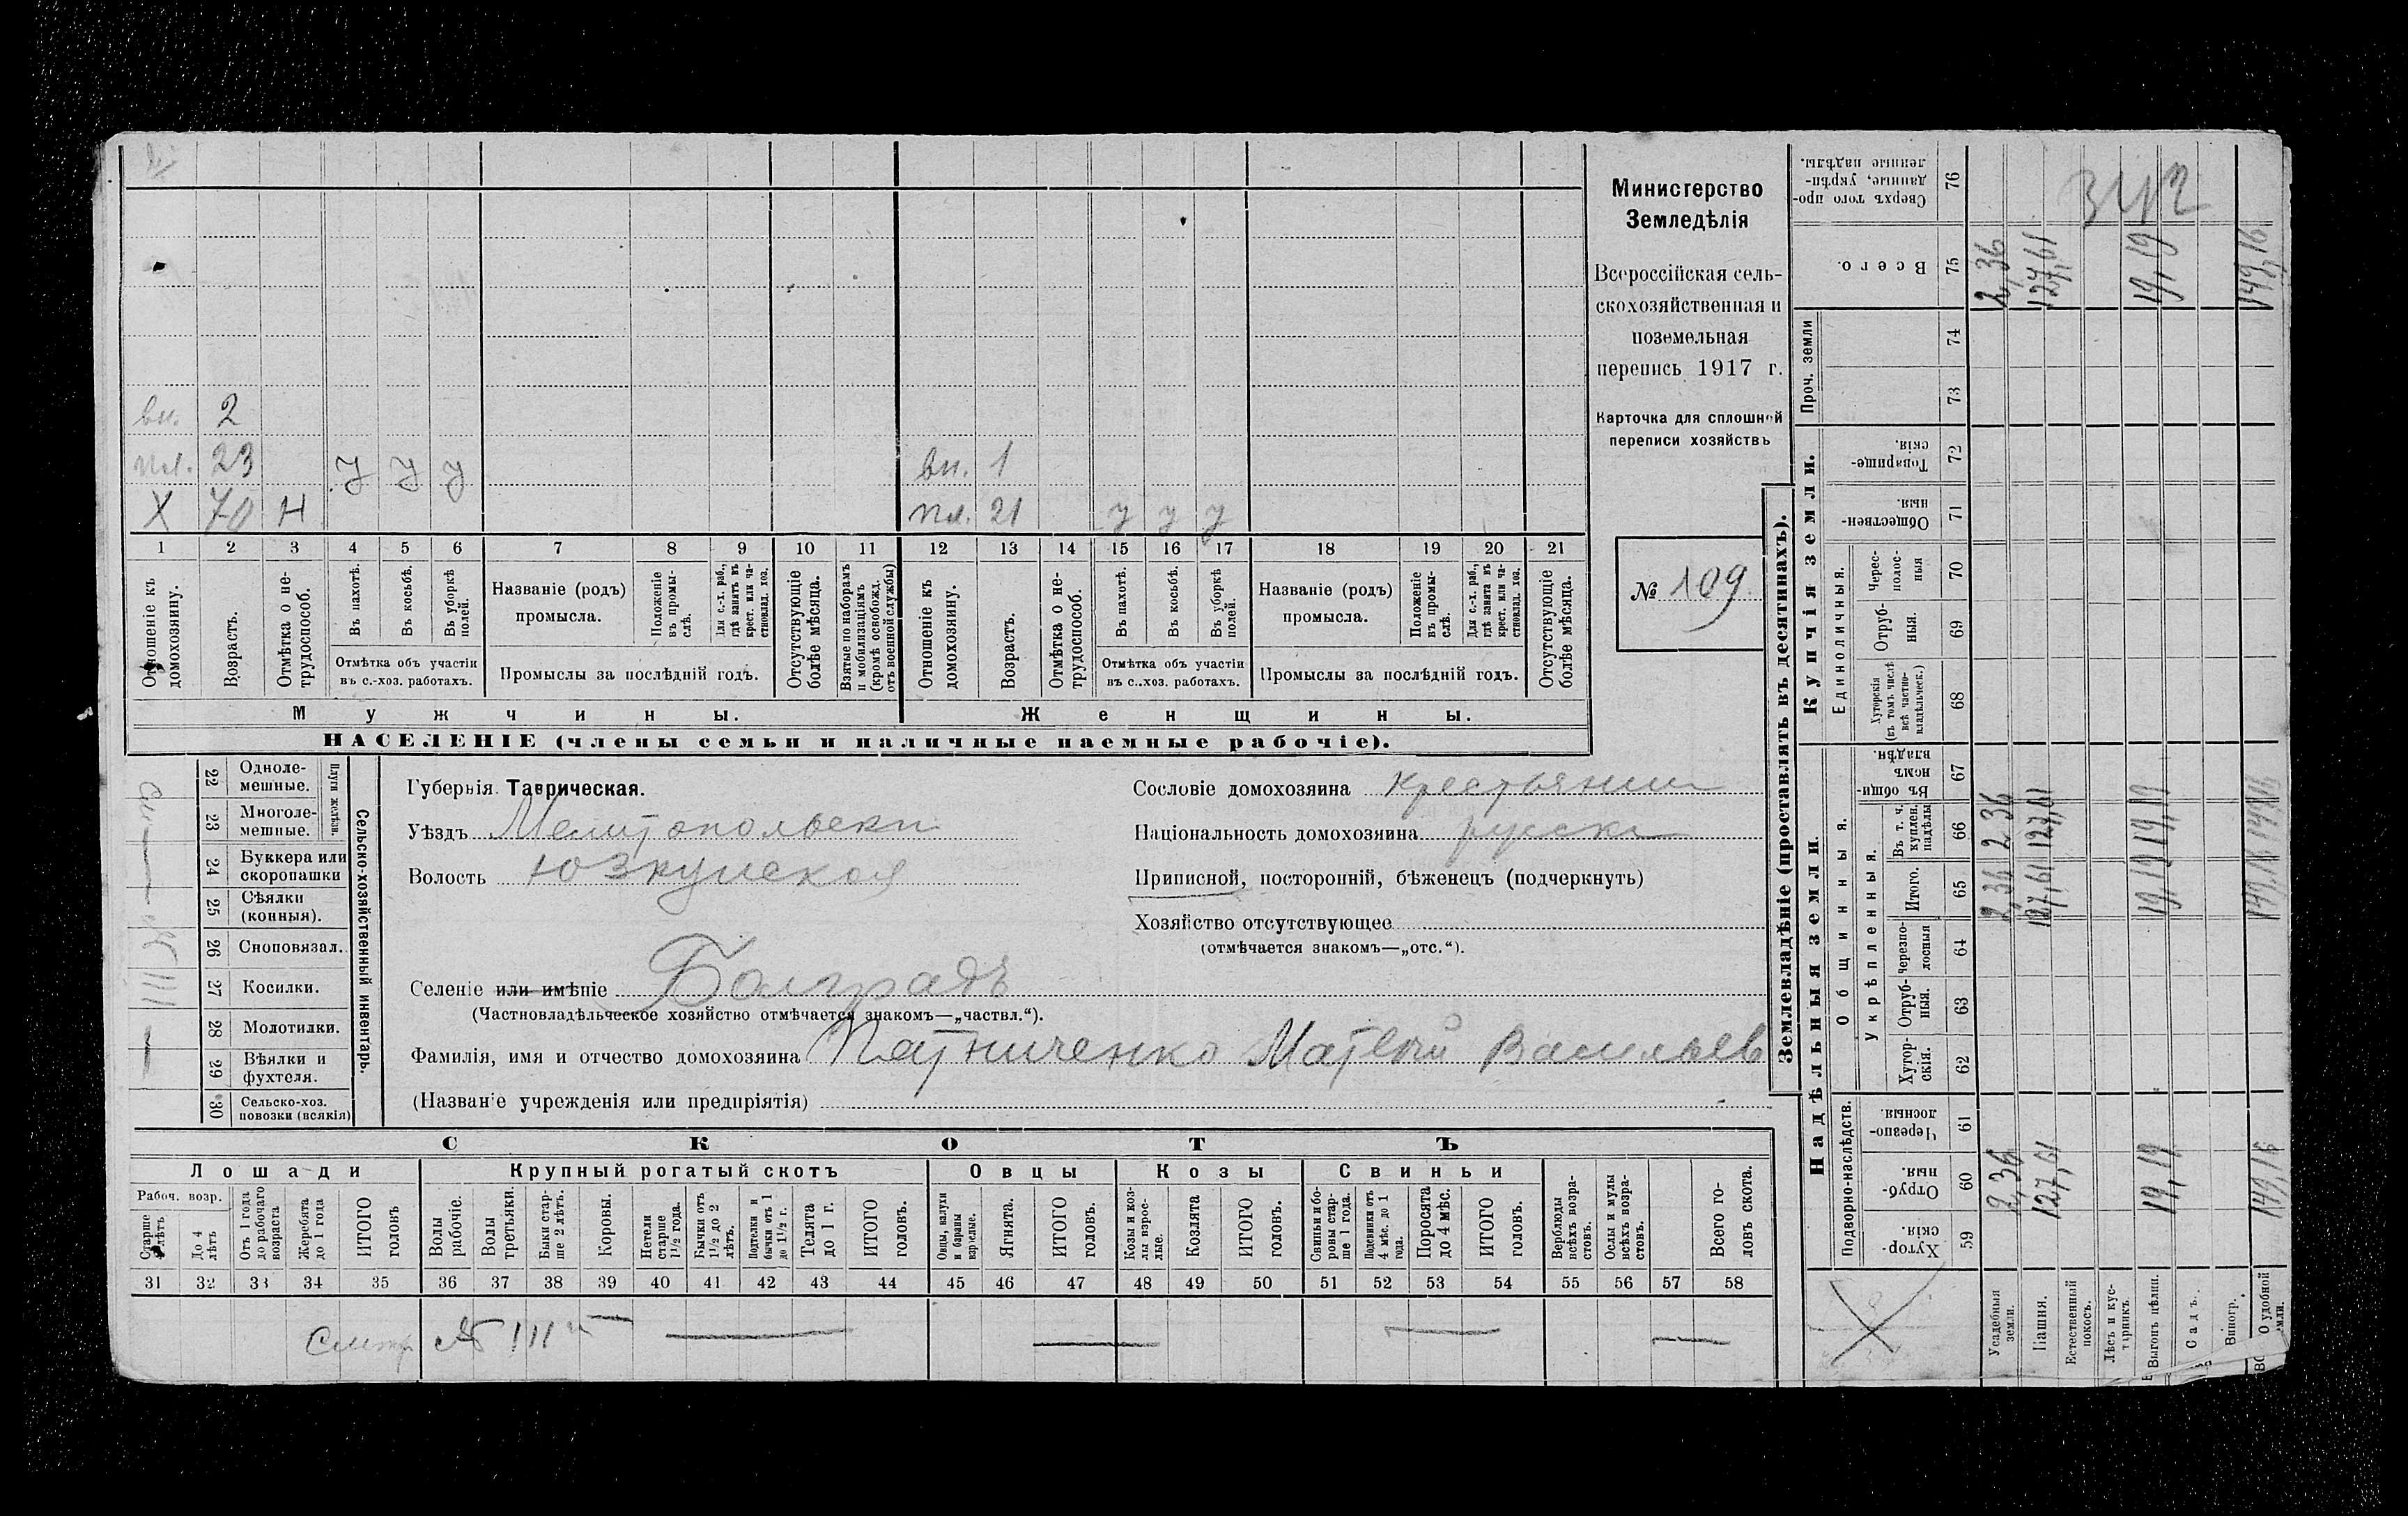 вн. 2
пл. 23 У У У вн. 1
Х 70 Н пл. 21 У У У
1 2 3 4 5 6 7 8 9 10 11 12 13 14 15 16 17 18 19 20 21
Отношеніе къ домохозяину.
Возрастъ.
Отмѣтка о не-трудоспособ.
Въ пахотѣ.
Въ косьбѣ.
Въ уборкѣ полей.
Отмѣтка объ участіи
въ с.-хоз. работахъ.
Названіе (родъ)
промысла.
Положеніе въ промы-слѣ.
Для с.-х. раб., гдѣ занятъ въ крест. или ча-стновлад. хоз.
Промыслы за послѣдній годъ.
Отсутствующіе болѣе мѣсяца.
Взятые по наборамъ и мобилизаціямъ (кромѣ освобожд. отъ военной службы)
Отношеніе къ домохозяину.
Возрастъ.
Отмѣтка о не-трудоспособ.
Въ пахотѣ.
Въ косьбѣ.
Въ уборкѣ полей.
Отмѣтка объ участіи
въ с.-хоз. работахъ.
Названіе (родъ)
промысла.
Положеніе въ промы-слѣ.
Для с.-х. раб., гдѣ занята въ крест. или ча-стновлад. хоз.
Промыслы за послѣдній годъ.
Отсутствующіе болѣе мѣсяца.
Мужчины. Женщины.
НАСЕЛЕНІЕ (члены семьи и наличные наемные рабочіе).
Министерство
Земледѣлія
Всероссійская сель-
скохозяйственная и
поземельная
перепись 1917 г.
Карточка для сплошной
переписи хозяйствъ
№ 109
22 Одноле-мешные.
23 Многоле-мешные.
Плуги желѣзн.
24 Буккера или скоропашки
25 Сѣялки (конныя).
26 Сноповязал.
27 Косилки.
28 Молотилки.
29 Вѣялки и фухтеля.
30 Сельско-хоз. повозки (всякія)
Сельско-хозяйственный инвентарь.
Губернія Таврическая.
Уѣздъ Мелитопольски
Волость Юзкуйская
Селеніе или имѣніе Болградъ
(Частновладѣльческое хозяйство отмѣчается знакомъ—„частвл.“).
Фамилія, имя и отчество домохозяина Пятниченко Матвѣй Васильев
(Названіе учрежденія или предпріятія)
Сословіе домохозяина крестьянин
Національность домохозяина русски
Приписной, посторонній, бѣженецъ (подчеркнуть)
Хозяйство отсутствующее
(отмѣчается знакомъ—„отс.“).
СКОТЪ
Лошади Крупный рогатый скотъ Овцы Козы Свиньи
Рабоч. возр.
Старше 4 лѣтъ
До 4 лѣтъ
Отъ 1 года до рабочаго возраста
Жеребята до 1 года
ИТОГО головъ
Волы рабочіе.
Волы третьяки.
Быки стар-ше 2 лѣтъ.
Коровы.
Нетели старше 1½ года.
Бычки отъ 1½ до 2 лѣтъ.
Подтелки и бычки отъ 1 до 1½ г.
Телята до 1 г.
ИТОГО головъ.
Овцы, валухи и бараны взрослые.
Ягнята.
ИТОГО головъ.
Козы и коз-лы взрос-лые.
Козлята
ИТОГО головъ.
Свиньи и бо-ровы стар-ше 1 года.
Подсвинки отъ 4 мѣс. до 1 года.
Поросята до 4 мѣс.
ИТОГО головъ.
Верблюды всѣхъ возра-стовъ.
Ослы и мулы всѣхъ возра-стовъ.
Всего го-ловъ скота.
31 32 33 34 35 36 37 38 39 40 41 42 43 44 45 46 47 48 49 50 51 52 53 54 55 56 57 58
Смотр № 111
Землевладѣніе (проставлять въ десятинахъ).
Надѣльныя земли. Купчія земли. Проч. земли
Подворно-наслѣдств.
Общинныя.
Укрѣпленныя.
Единоличныя.
Хутор-скія. 59
Отруб-ныя. 60
Черезпо-лосныя. 61
Хутор-скія. 62
Отруб-ныя. 63
Черезпо-лосныя 64
Итого. 65
Въ т. ч. куплен. надѣлы 66
Въ общи-номъ владѣн. 67
Хуторскія (въ томъ числѣ всѣ частно-владѣльческ.) 68
Отруб-ныя. 69
Черес-полос-ныя 70
Обществен-ныя. 71
Товарище-скія. 72
73
74
Всего. 75
Сверхъ того про-данные, укрѣп-ленные надѣлы. 76
Усадебныя земли. 2,36 2,36 2 36 2,36
Пашня. 127,61 127,61 127,61 127,61
Естественный покосъ.
Лѣсъ и кус-тарникъ.
Выгонъ цѣлин. 19,19 19,19 19,19 19,19
Садъ.
Виногр.
О удобной земли. 149,16 149,16 149,16 149,16
342